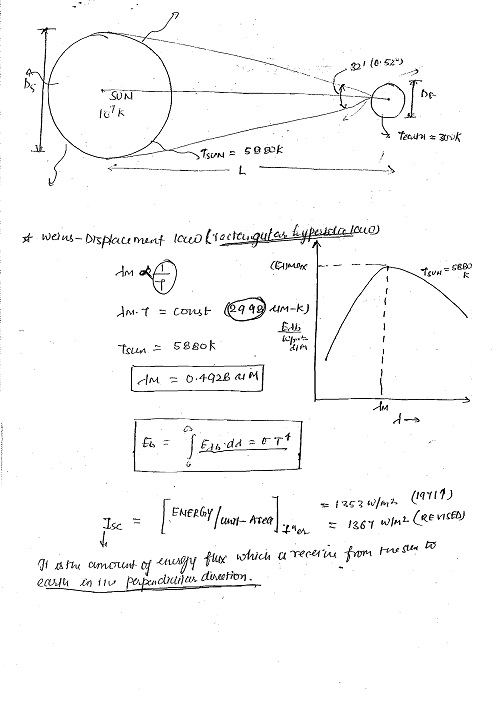 32' (0.52°)
Ds
SUN
10⁷ K
DE
TEarth = 300K
TSUN = 5880K
L
* Weins-Displacement law (rectangular hyperbola law)
λM ∝ 1/T
λM.T = const (2998 μM-K)
TSUN = 5880K
λM = 0.4928 μM
(Eλ)max
TSUN = 5880 K
Eλb
W/m²-μM
λM
λ→
Eb = ∫₀^∞ Eλb.dλ = σT⁴
Isc = [ENERGY/unit-Area]I^er = 1353 W/m² (1971)
= 1367 W/m² (REVISED)
It is the amount of energy flux which a receive from the sun to
earth in its perpendicular direction.